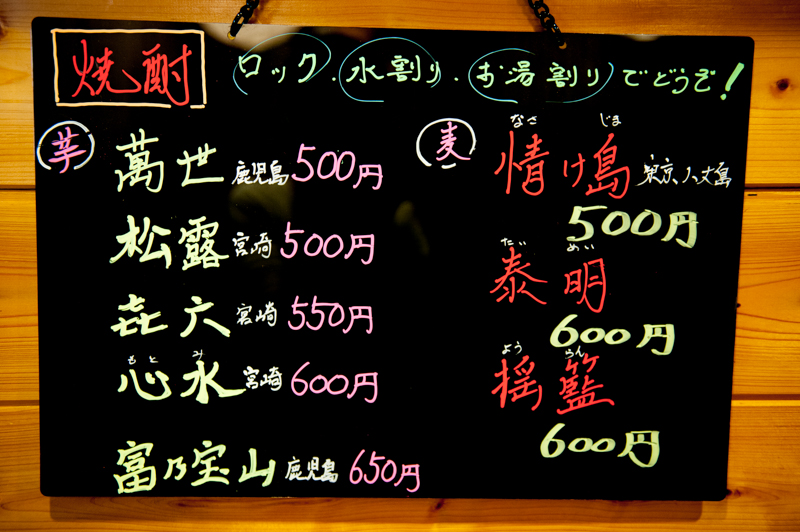 焼酎 ロック・水割り・お湯割りでどうぞ!
芋
萬世 鹿児島 500円
松露 宮崎 500円
㐂六 宮崎 550円
もとみ
心水 宮崎 600円
富乃宝山 鹿児島 650円
麦
なさ じま
情け島 東京、八丈島
500円
たい めい
泰明
600円
よう らん
揺籃
600円